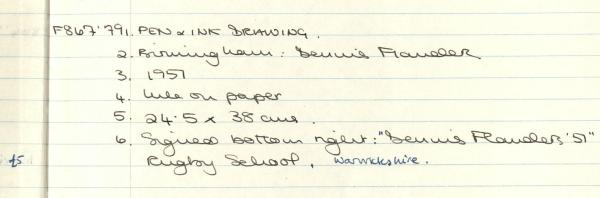 F867'79 1. PEN & INK DRAWING.
2. Birmingham: Dennis Flander
3. 1951
4. Ink on paper
5. 24.5 x 38 cms.
6. Signed bottom right: "Dennis Flanders '51"
£5 Rugby School, Warwickshire.